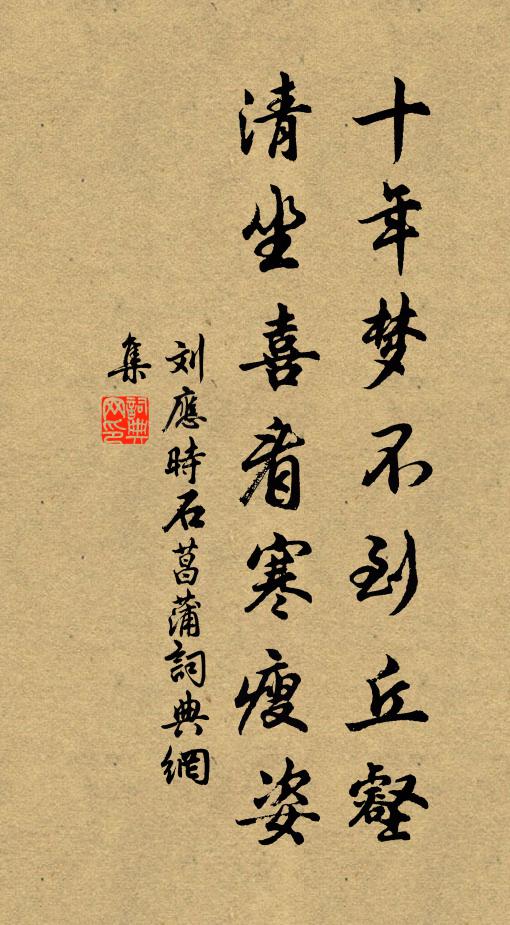 十年梦不到丘壑
清坐喜看寒瘦姿
刘應時石菖蒲詞典網
集
詞典
网印